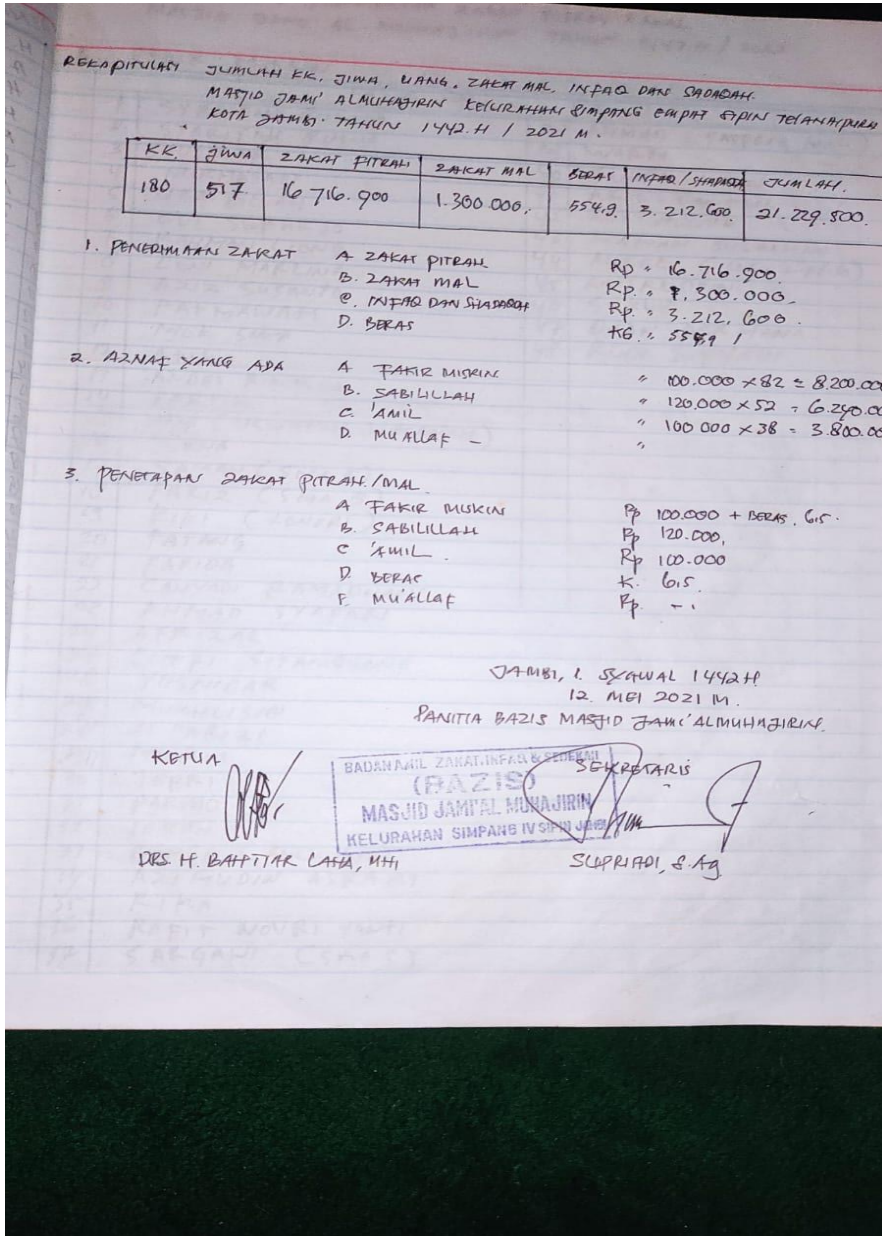 REKAPITULASI JUMLAH KK, JIWA, UANG, ZAKAT MAL, INFAQ DAN SADAQAH.
MASJID JAMI' ALMUHAJIRIN KELURAHAN SIMPANG EMPAT SIPIN TELANAIPURA
KOTA JAMBI. TAHUN 1442.H / 2021 M.
KK. JIWA ZAKAT FITRAH ZAKAT MAL BERAS INFAQ/SHADAQAH JUMLAH.
180 517 16 716.900 1.300 000, 554.9. 3.212.600. 21.229.500.
1. PENERIMAAN ZAKAT A ZAKAT PITRAH Rp " 16.716.900.
B. ZAKAT MAL Rp. " 1,300.000,
C. INFAQ DAN SHADAQOH Rp. " 3.212,600.
D. BERAS KG. "
2. AZNAF YANG ADA A FAKIR MISKIN " 100.000 x 82 = 8.200.00
B. SABILILLAH " 120.000 x 52 = 6.240.00
C. 'AMIL " 100 000 x 38 = 3.800.00
D. MUALLAF - "
3. PENETAPAN ZAKAT PITRAH./MAL.
A FAKIR MISKIN Rp 100.000 + BERAS. 6,5.
B. SABILILLAH Rp 120.000,
C 'AMIL. Rp 100.000
D. BERAS K. 6,5
F. MU'ALLAF Rp. - .
JAMBI, 1. SYAWAL 1442 H
12. MEI 2021 M.
PANITIA BAZIS MASJID JAMI' ALMUHAJIRIN.
KETUA SEKRETARIS
BADAN AMIL ZAKAT, INFAQ & SEDEKAH
(BAZIS)
MASJID JAMI'AL MUHAJIRIN
KELURAHAN SIMPANG IV SIPIN JAMBI
DRS. H. BAHTIAR LAHA, MHI SUPRIADI, S.Ag